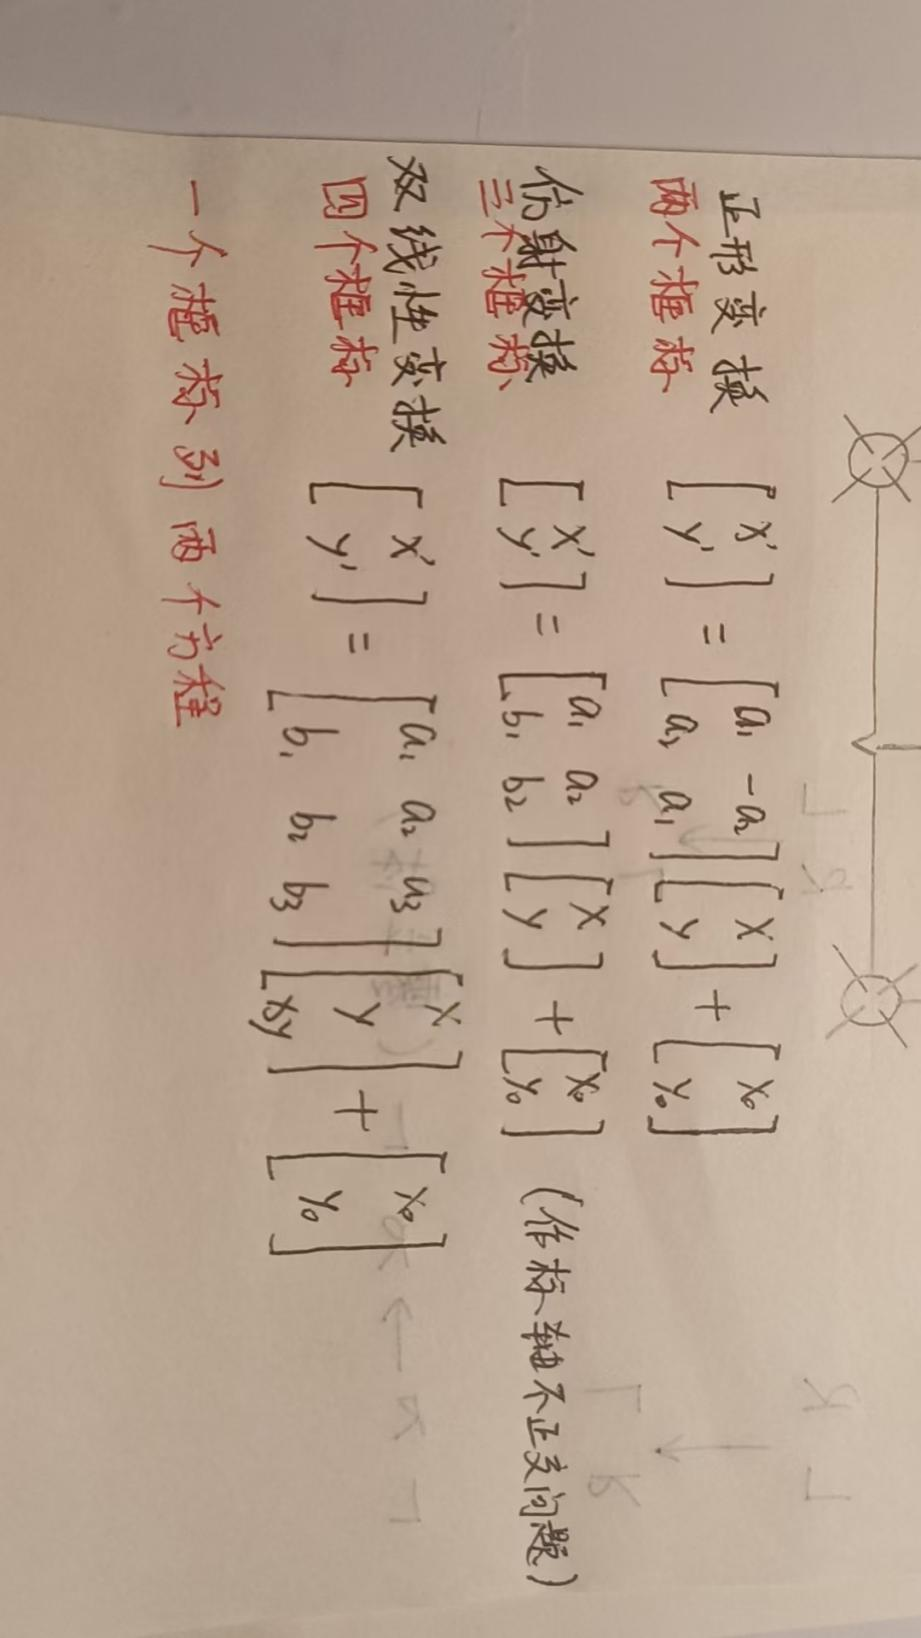 正形变换 [x' y'] = [a₁ -a₂ a₂ a₁] [x y] + [x₀ y₀]
两个框标
仿射变换 [x' y'] = [a₁ a₂ b₁ b₂] [x y] + [x₀ y₀] (作标轴不正交问题)
三个框标
双线性变换 [x' y'] = [a₁ a₂ a₃ b₁ b₂ b₃] [x y xy] + [x₀ y₀]
四个框标
一个框标列两个方程